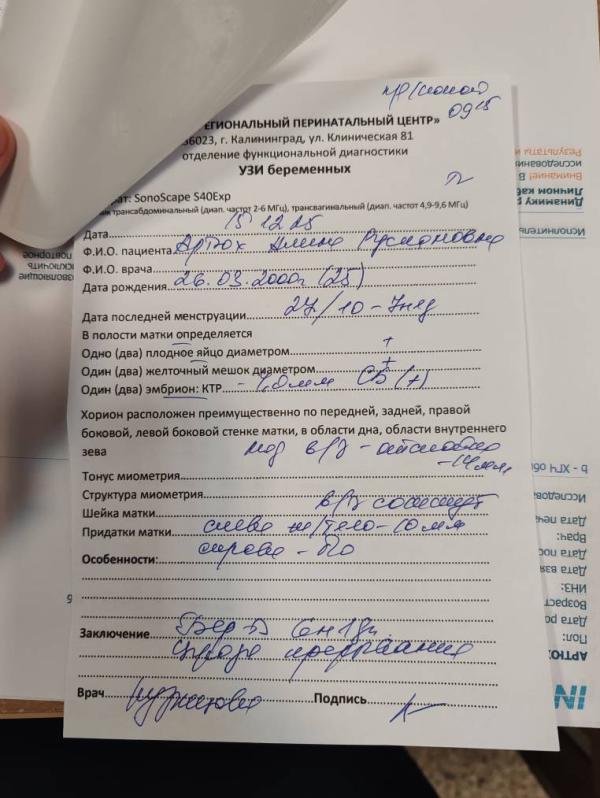 0915
ЕГИОНАЛЬНЫЙ ПЕРИНАТАЛЬНЫЙ ЦЕНТР»
36023, г. Калининград, ул. Клиническая 81
отделение функциональной диагностики
УЗИ беременных
рат: SonoScape S40Exp
трансабдоминальный (диап. частот 2-6 МГц), трансвагинальный (диап. частот 4,9-9,6 МГц)
Дата 15 12 25
Ф.И.О. пациента Артюх Алина Руслановна
Ф.И.О. врача
Дата рождения 26.03.2000г (25)
Дата последней менструации 27/10 - 7нед
В полости матки определяется
Одно (два) плодное яйцо диаметром +
Один (два) желточный мешок диаметром +
Один (два) эмбрион: КТР - мм СБ (+)
Хорион расположен преимущественно по передней, задней, правой
боковой, левой боковой стенке матки, в области дна, области внутреннего
зева над в/з - отслойка
- 14 мм
Тонус миометрия
Структура миометрия
Шейка матки в/з сомкнут
Придатки матки слева ж/тело - мм
Особенности: справа - б/о
Заключение Бер-ть 6н 1дн
Угроза прерывания
Врач Подпись
Результаты и
Внимание! В
исследовани
Динамику р
Личном каб
Исполнитель
зволяющие
исключить
повторное
b - ХГЧ общ
Исследова
Дата печа
Врач:
Дата пос
Дата взя
ИНЗ:
Возраст
Дата ро
Пол:
АРТЮ
IN